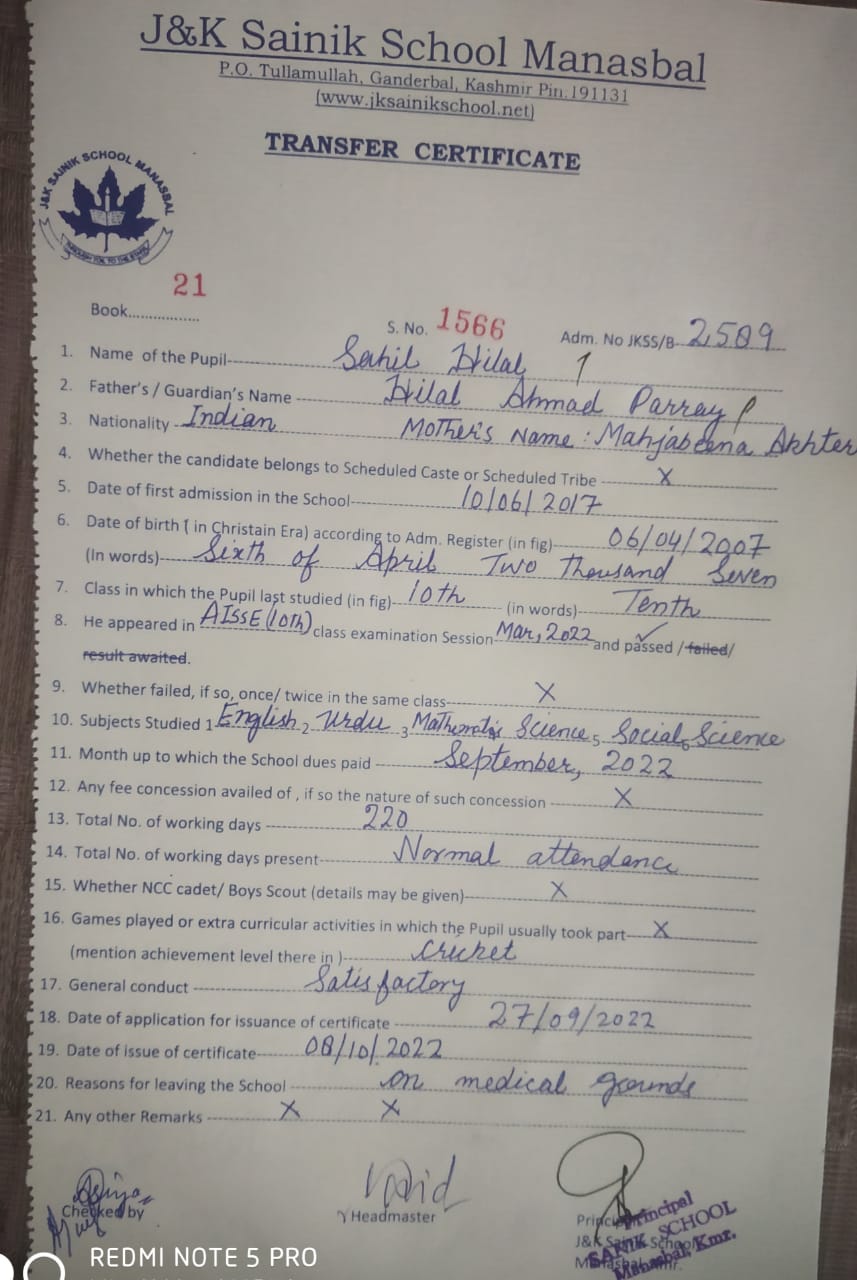 J&K Sainik School Manasbal
P.O. Tullamullah, Ganderbal, Kashmir Pin:191131
(www.jksainikschool.net)
TRANSFER CERTIFICATE
J&K SAINIK SCHOOL MANASBAL
Book.................. 21
S. No. 1566
Adm. No JKSS/B 2509
1. Name of the Pupil Sahil Hilal
2. Father's / Guardian's Name Hilal Ahmad Parray
3. Nationality Indian Mother's Name : Mahjabeena Akhter
4. Whether the candidate belongs to Scheduled Caste or Scheduled Tribe X
5. Date of first admission in the School 10/06/2017
6. Date of birth ( in Christain Era) according to Adm. Register (in fig) 06/04/2007
(In words) Sixth of April Two thousand Seven
7. Class in which the Pupil last studied (in fig) 10th (in words) Tenth
8. He appeared in AISSE (10th) class examination Session Mar, 2022 and passed / failed/
result awaited.
9. Whether failed, if so, once/ twice in the same class X
10. Subjects Studied 1 English 2 Urdu 3 Mathematics Science 5 Social 6 Science
11. Month up to which the School dues paid September, 2022
12. Any fee concession availed of , if so the nature of such concession X
13. Total No. of working days 220
14. Total No. of working days present Normal attendance
15. Whether NCC cadet/ Boys Scout (details may be given) X
16. Games played or extra curricular activities in which the Pupil usually took part X
(mention achievement level there in ) Cricket
17. General conduct Satisfactory
18. Date of application for issuance of certificate 27/09/2022
19. Date of issue of certificate 08/10/2022
20. Reasons for leaving the School on medical grounds
21. Any other Remarks X X
Checked by
Headmaster
Principal
J&K Sainik School
Manasbal, Kmr.
Principal
SANIK SCHOOL
Manasbal, Kmr.
REDMI NOTE 5 PRO